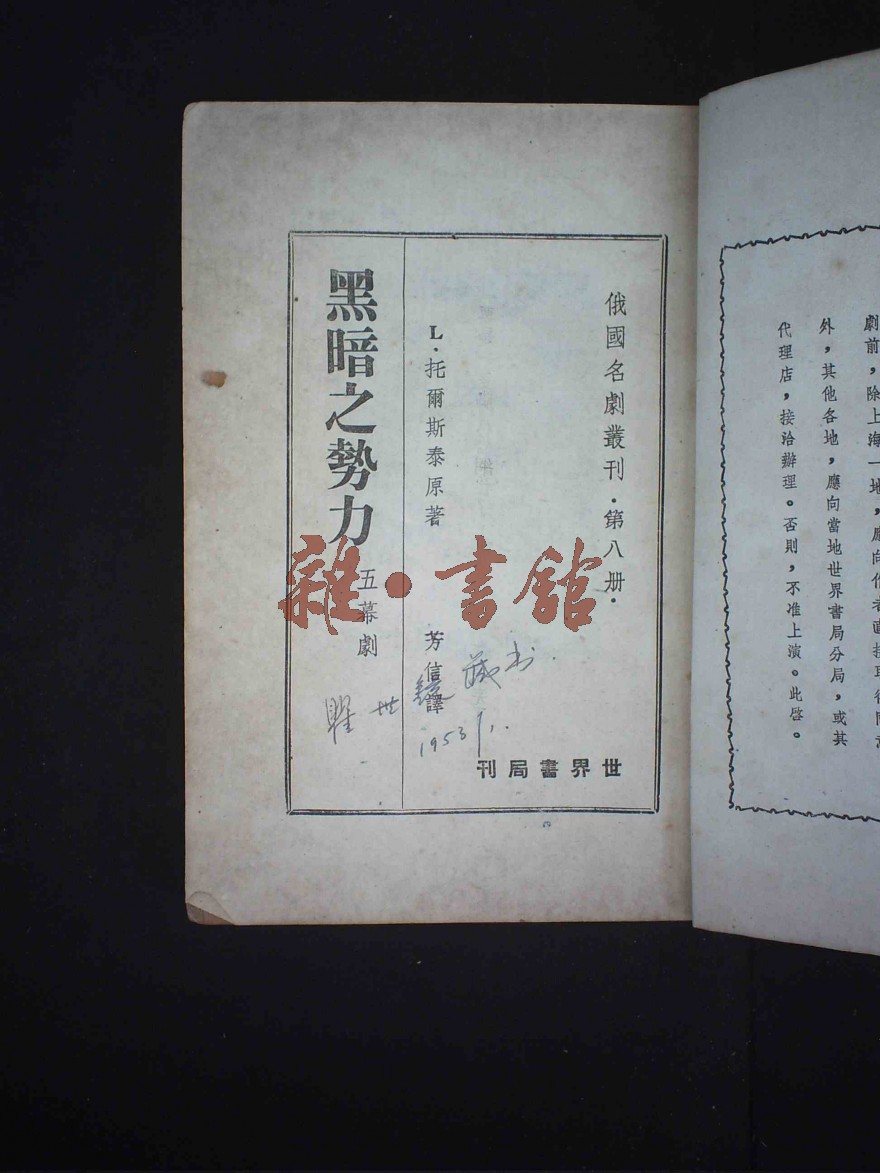 劇前，除上海一地，應向作者直接取得同意
外，其他各地，應向當地世界書局分局，或其
代理店，接洽辦理。否則，不准上演。此啓。
俄國名劇叢刊·第八册·
L·托爾斯泰原著
芳信譯
世界書局刊
黑暗之勢力
五幕劇
世 藏书
1953/1.
雜·書館